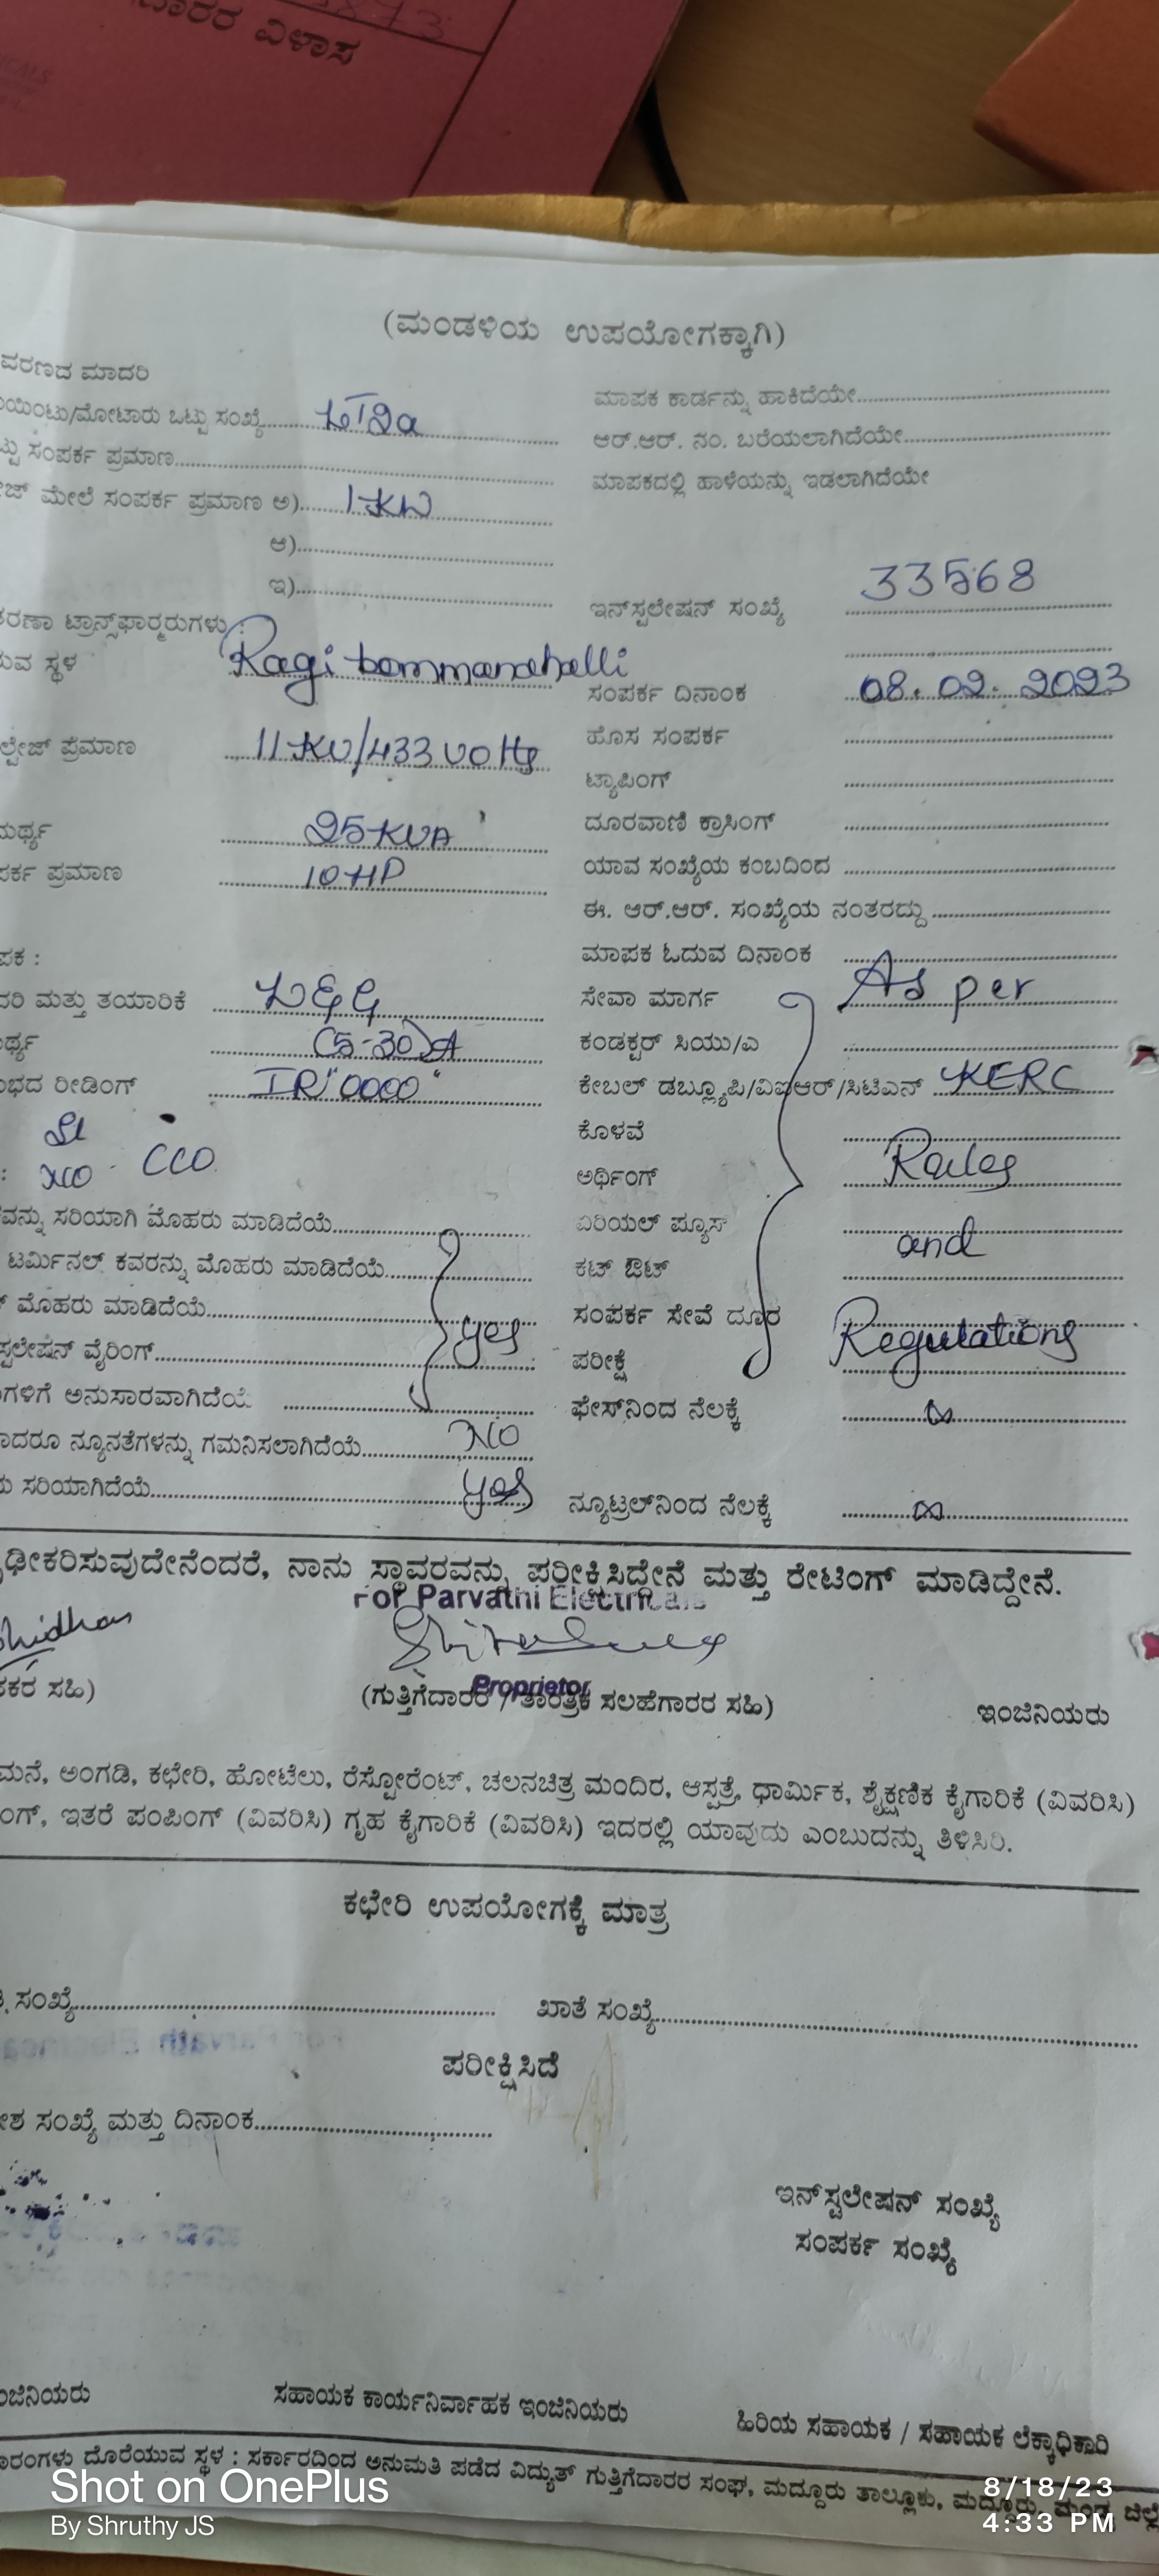 ವಿಳಾಸ
(ಮಂಡಳಿಯ ಉಪಯೋಗಕ್ಕಾಗಿ)
ವರಣದ ಮಾದರಿ
ಯಿಂಟು/ಮೋಟಾರು ಒಟ್ಟು ಸಂಖ್ಯೆ
ಟ್ಟು ಸಂಪರ್ಕ ಪ್ರಮಾಣ
ೇಜ್ ಮೇಲೆ ಸಂಪರ್ಕ ಪ್ರಮಾಣ ಅ) 1-KW
ಆ)
ಇ)
ಕರಣಾ ಟ್ರಾನ್ಸ್‌ಫಾರ್ಮರುಗಳು :
ುವ ಸ್ಥಳ Ragi bommanahalli
ಲ್ಟೇಜ್ ಪ್ರಮಾಣ 11-KV/433 volts
ಮರ್ಥ್ಯ 25-KVA
ಪರ್ಕ ಪ್ರಮಾಣ 10-HP
ಪಕ :
ದರಿ ಮತ್ತು ತಯಾರಿಕೆ L&G
ರ್ಥ್ಯ (5-30)A
ಂಭದ ರೀಡಿಂಗ್ IR "0000"
Sl
: NO - CCO
ವನ್ನು ಸರಿಯಾಗಿ ಮೊಹರು ಮಾಡಿದೆಯೆ
ಟರ್ಮಿನಲ್ ಕವರನ್ನು ಮೊಹರು ಮಾಡಿದೆಯೆ
ಮೊಹರು ಮಾಡಿದೆಯೆ
ಸ್ಟಲೇಷನ್ ವೈರಿಂಗ್ yes
ಗಳಿಗೆ ಅನುಸಾರವಾಗಿದೆಯೆ
ಾದರೂ ನ್ಯೂನತೆಗಳನ್ನು ಗಮನಿಸಲಾಗಿದೆಯೆ NO
ು ಸರಿಯಾಗಿದೆಯೆ yes
ಮಾಪಕ ಕಾರ್ಡನ್ನು ಹಾಕಿದೆಯೇ
ಆರ್.ಆರ್. ನಂ. ಬರೆಯಲಾಗಿದೆಯೇ
ಮಾಪಕದಲ್ಲಿ ಹಾಳೆಯನ್ನು ಇಡಲಾಗಿದೆಯೇ
ಇನ್‌ಸ್ಟಲೇಷನ್ ಸಂಖ್ಯೆ 33568
ಸಂಪರ್ಕ ದಿನಾಂಕ 08.02.2023
ಹೊಸ ಸಂಪರ್ಕ
ಟ್ಯಾಪಿಂಗ್
ದೂರವಾಣಿ ಕ್ರಾಸಿಂಗ್
ಯಾವ ಸಂಖ್ಯೆಯ ಕಂಬದಿಂದ
ಈ. ಆರ್.ಆರ್. ಸಂಖ್ಯೆಯ ನಂತರದ್ದು
ಮಾಪಕ ಓದುವ ದಿನಾಂಕ
ಸೇವಾ ಮಾರ್ಗ As per
ಕಂಡಕ್ಟರ್ ಸಿಯು/ಎ
ಕೇಬಲ್ ಡಬ್ಲ್ಯೂಪಿ/ವಿಐಆರ್/ಸಿಟಿಎಸ್ KERC
ಕೊಳವೆ
ಅರ್ಥಿಂಗ್ Rules
ಏರಿಯಲ್ ಪ್ಯೂಸ್ and
ಕಟ್ ಔಟ್
ಸಂಪರ್ಕ ಸೇವೆ ದೂರ Regulations
ಪರೀಕ್ಷೆ
ಫೇಸ್‌ನಿಂದ ನೆಲಕ್ಕೆ ∞
ನ್ಯೂಟ್ರಲ್‌ನಿಂದ ನೆಲಕ್ಕೆ ∞
ಢೀಕರಿಸುವುದೇನೆಂದರೆ, ನಾನು ಸ್ಥಾವರವನ್ನು ಪರೀಕ್ಷಿಸಿದ್ದೇನೆ ಮತ್ತು ರೇಟಿಂಗ್ ಮಾಡಿದ್ದೇನೆ.
For Parvathi Electricals
Proprietor
ಕರ ಸಹಿ) (ಗುತ್ತಿಗೆದಾರರ / ತಾಂತ್ರಿಕ ಸಲಹೆಗಾರರ ಸಹಿ) ಇಂಜಿನಿಯರು
ಮನೆ, ಅಂಗಡಿ, ಕಛೇರಿ, ಹೋಟೆಲು, ರೆಸ್ಟೋರೆಂಟ್, ಚಲನಚಿತ್ರ ಮಂದಿರ, ಆಸ್ಪತ್ರೆ, ಧಾರ್ಮಿಕ, ಶೈಕ್ಷಣಿಕ ಕೈಗಾರಿಕೆ (ವಿವರಿಸಿ)
ಂಗ್, ಇತರೆ ಪಂಪಿಂಗ್ (ವಿವರಿಸಿ) ಗೃಹ ಕೈಗಾರಿಕೆ (ವಿವರಿಸಿ) ಇದರಲ್ಲಿ ಯಾವುದು ಎಂಬುದನ್ನು ತಿಳಿಸಿರಿ.
ಕಛೇರಿ ಉಪಯೋಗಕ್ಕೆ ಮಾತ್ರ
ಸಂಖ್ಯೆ ಖಾತೆ ಸಂಖ್ಯೆ
ಪರೀಕ್ಷಿಸಿದೆ
ೇಶ ಸಂಖ್ಯೆ ಮತ್ತು ದಿನಾಂಕ
ಇನ್‌ಸ್ಟಲೇಷನ್ ಸಂಖ್ಯೆ
ಸಂಪರ್ಕ ಸಂಖ್ಯೆ
ಂಜಿನಿಯರು ಸಹಾಯಕ ಕಾರ್ಯನಿರ್ವಾಹಕ ಇಂಜಿನಿಯರು ಹಿರಿಯ ಸಹಾಯಕ / ಸಹಾಯಕ ಲೆಕ್ಕಾಧಿಕಾರಿ
ಾರಂಗಳು ದೊರೆಯುವ ಸ್ಥಳ : ಸರ್ಕಾರದಿಂದ ಅನುಮತಿ ಪಡೆದ ವಿದ್ಯುತ್ ಗುತ್ತಿಗೆದಾರರ ಸಂಘ, ಮದ್ದೂರು ತಾಲ್ಲೂಕು, ಮದ್ದೂರು, ಮಂಡ್ಯ ಜಿಲ್ಲೆ
Shot on OnePlus
By Shruthy JS
8/18/23
4:33 PM